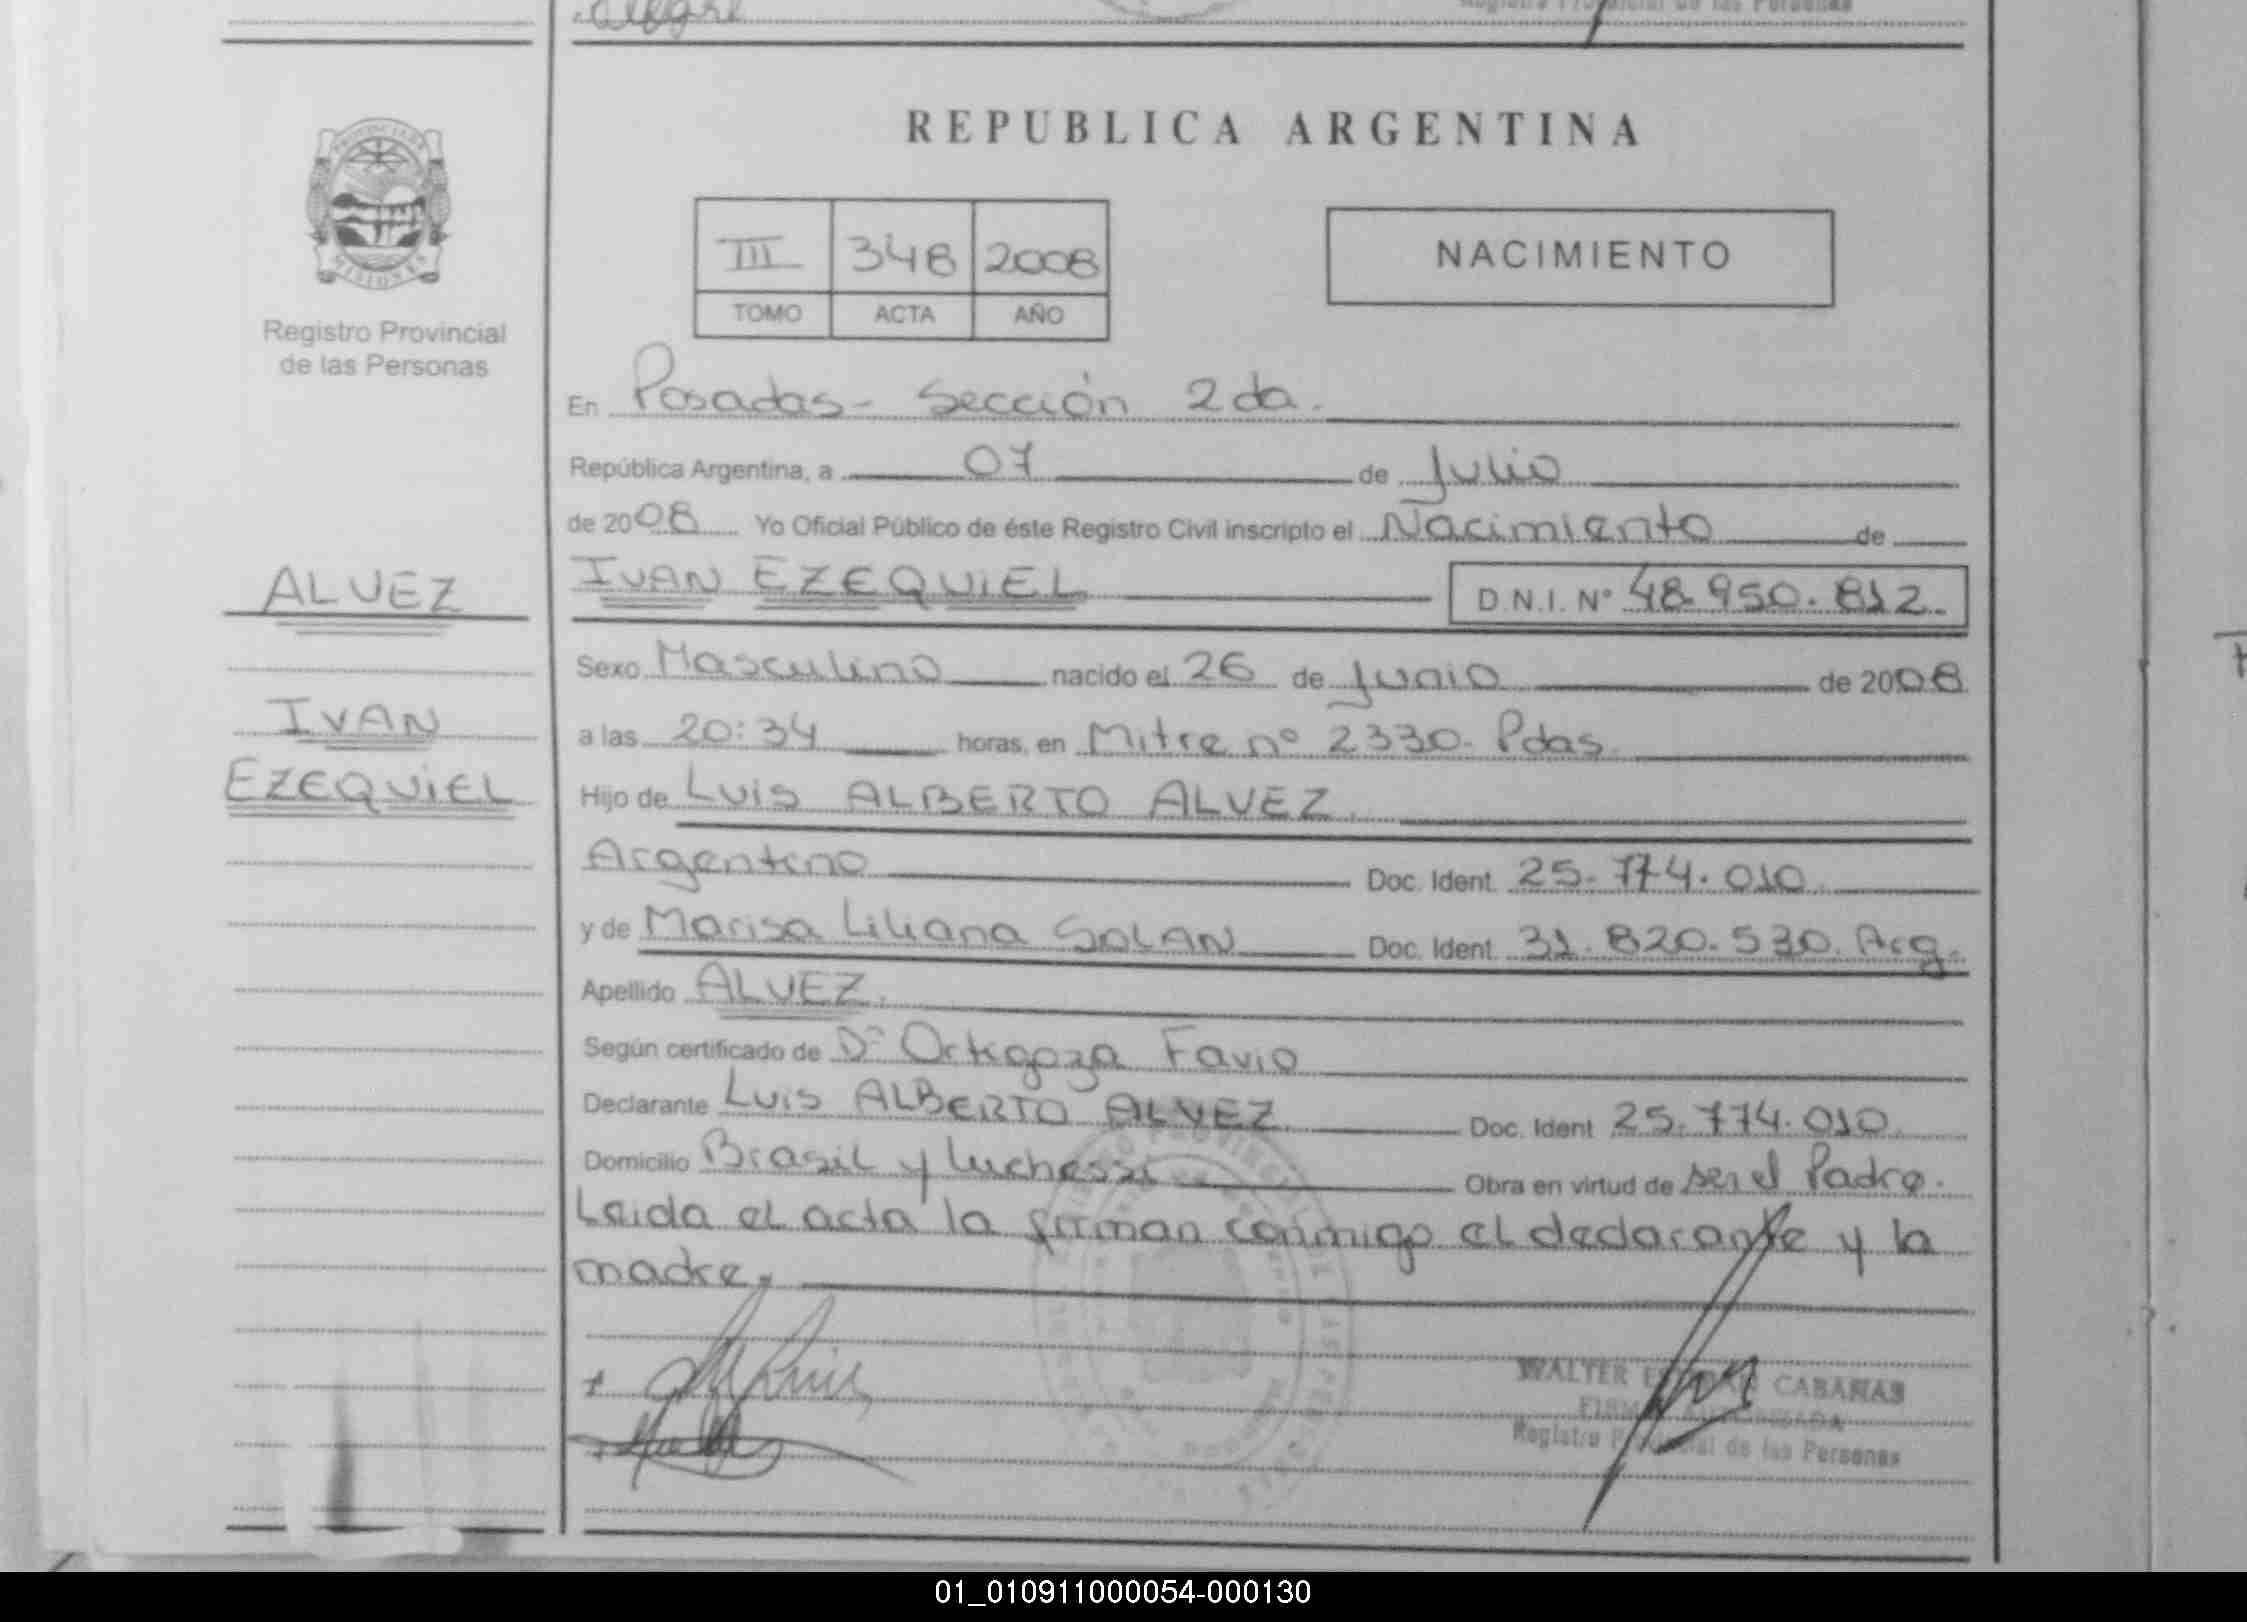 REPUBLICA ARGENTINA
PROVINCIA DE
MISIONES
Registro Provincial
de las Personas
III 348 2008
TOMO ACTA AÑO
NACIMIENTO
En Posadas - Sección 2da.
República Argentina, a 07 de Julio
de 2008 Yo Oficial Público de éste Registro Civil inscripto el Nacimiento de
ALVEZ
IVAN EZEQUIEL D.N.I. N° 48.950.812.
Sexo Masculino nacido el 26 de Junio de 2008
IVAN
a las 20:34 horas, en Mitre nº 2330. Pdas.
EZEQUIEL
Hijo de Luis ALBERTO ALVEZ.
Argentino Doc. Ident. 25.774.010.
y de Marisa Liliana SOLAN Doc. Ident. 31.820.530. Arg.
Apellido ALVEZ.
Según certificado de Dr Ortigoza Favio
Declarante Luis ALBERTO ALVEZ Doc. Ident. 25.774.010.
Domicilio Brasil y Luchessi Obra en virtud de ser el Padre.
Leida el acta la firman conmigo el declarante y la
madre.
WALTER CABAÑAS
FIRMA AUTORIZADA
Registro Provincial de las Personas
01_010911000054-000130